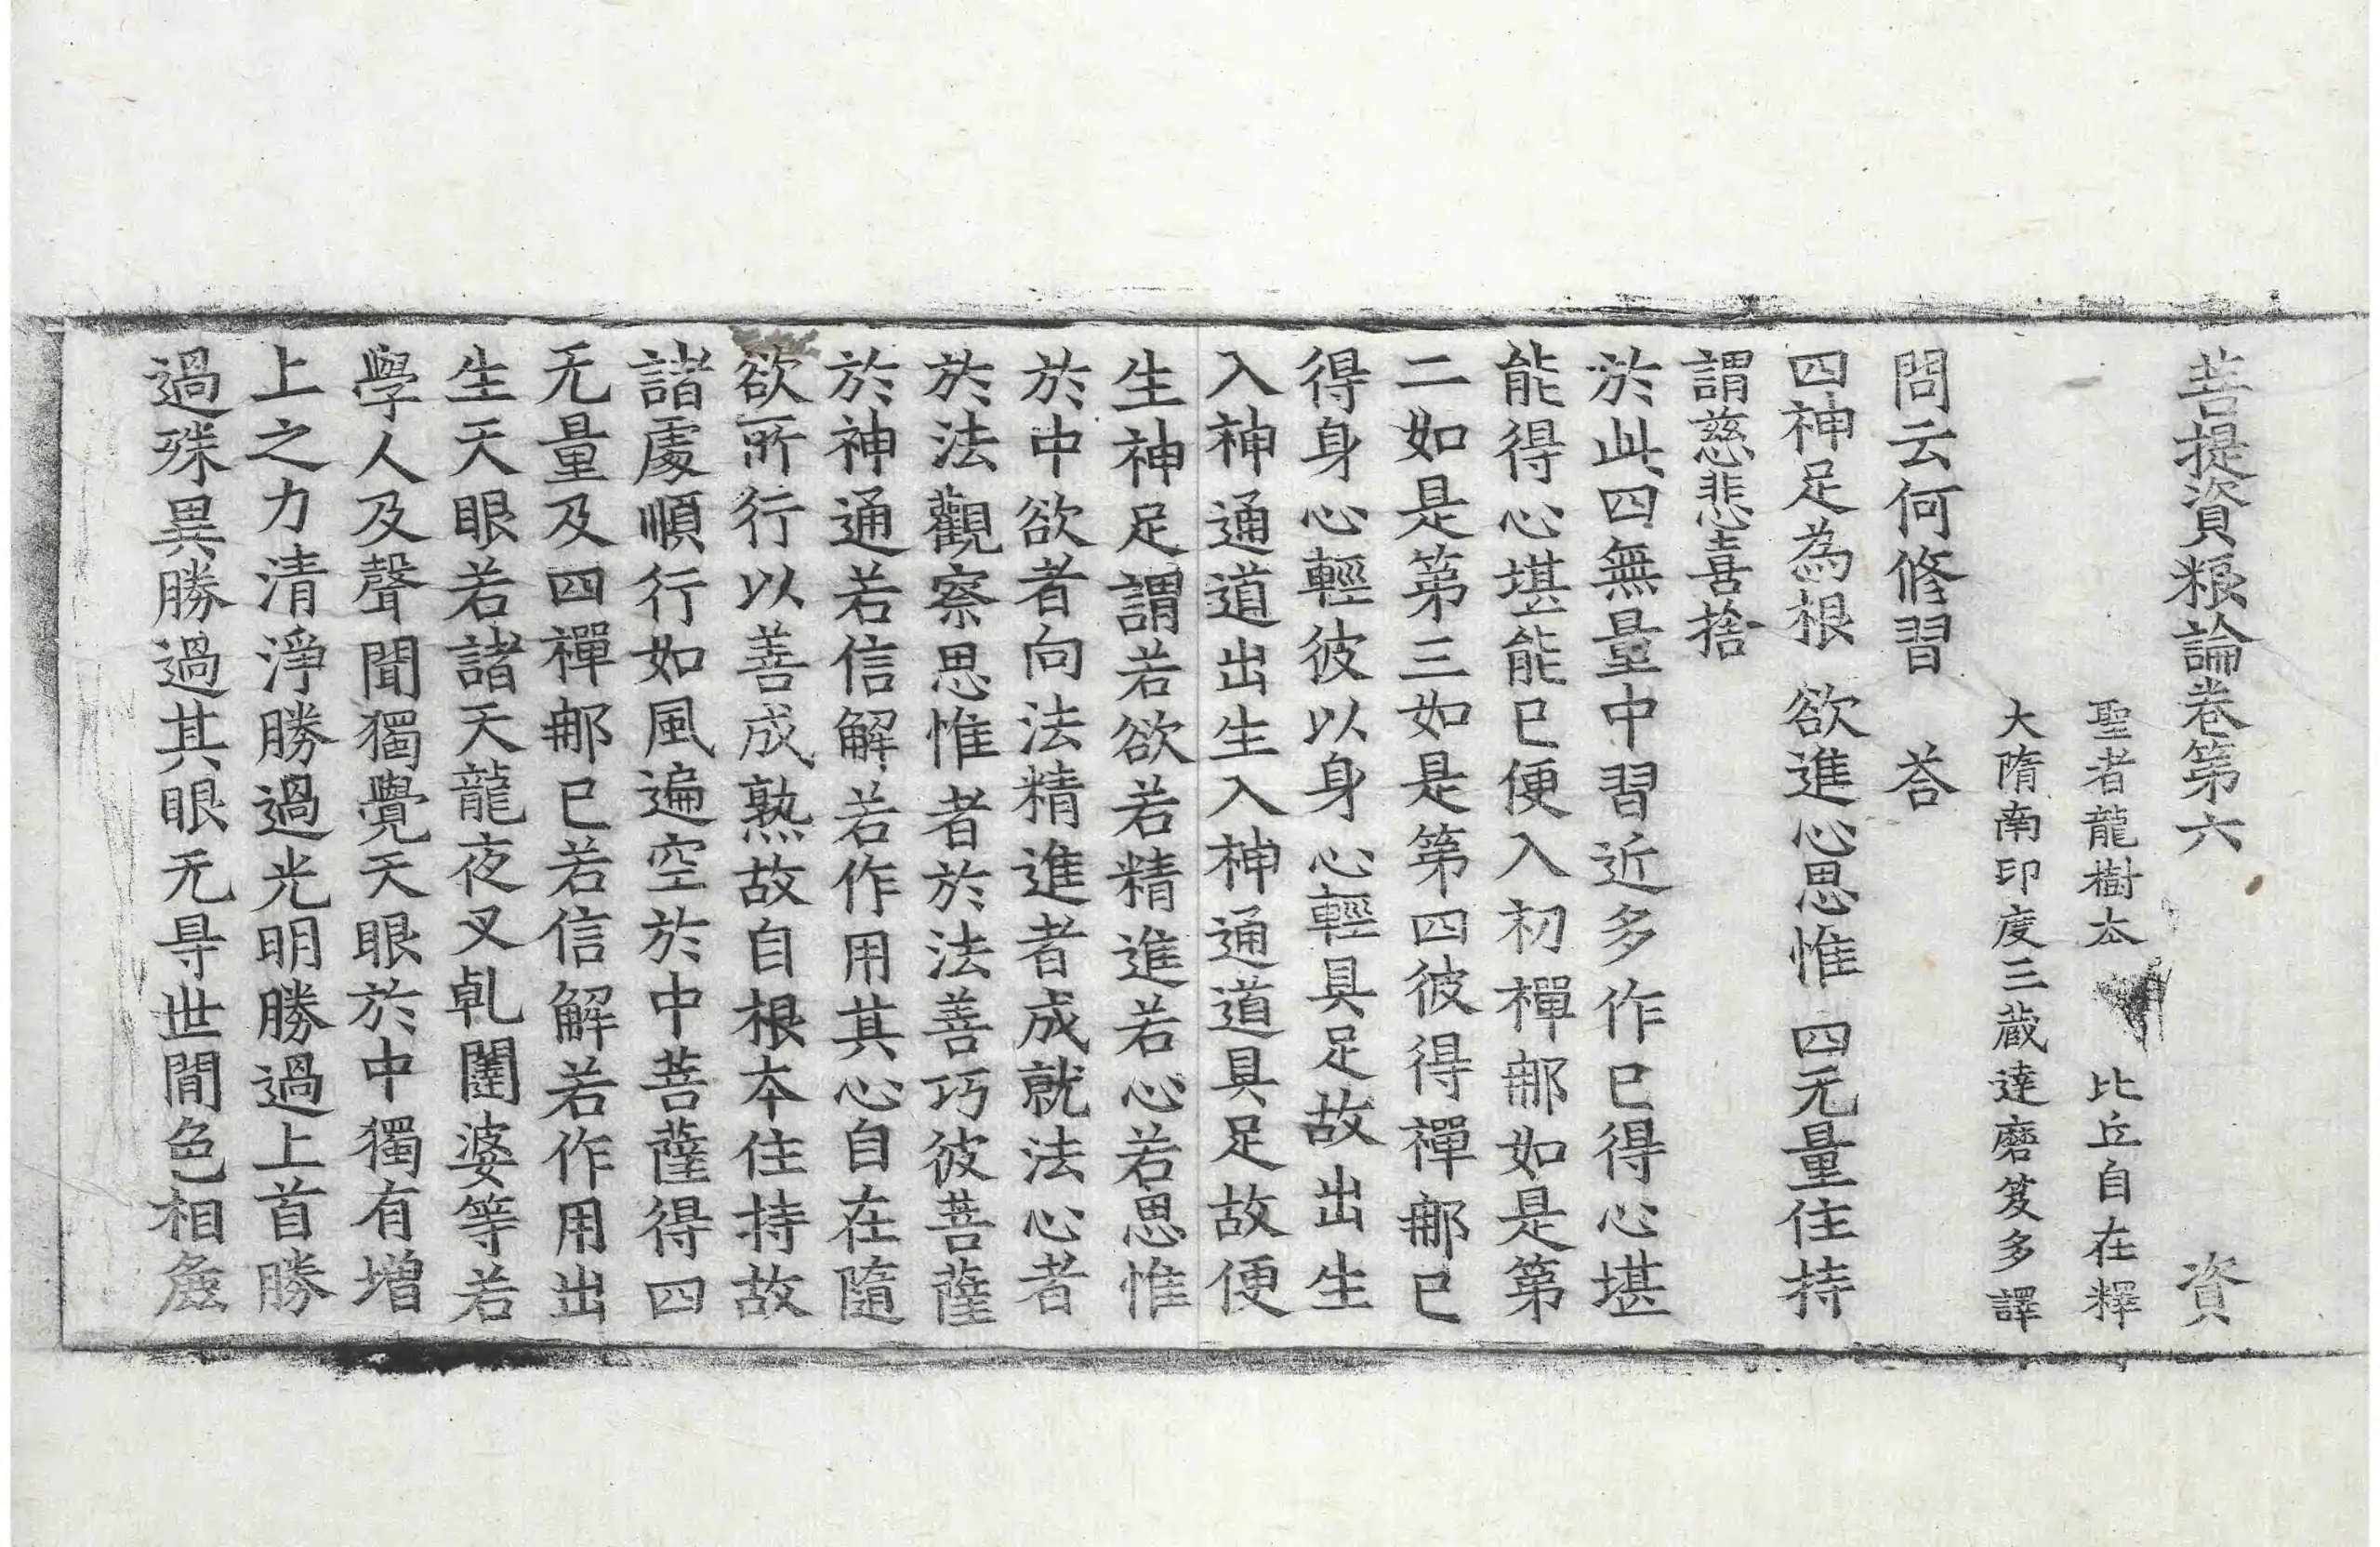 菩提資粮論卷第六　資
聖者龍樹本　比丘自在釋
大隋南印度三藏達磨笈多譯
問云何修習　荅
四神足為根　欲進心思惟　四无量住持
謂慈悲喜捨
於此四無量中習近多作已得心堪
能得心堪能已便入初禪那如是第
二如是第三如是第四彼得禪那已
得身心輕彼以身心輕具足故出生
入神通道出生入神通道具足故便
生神足謂若欲若精進若心若思惟
於中欲者向法精進者成就法心者
於法觀察思惟者於法善巧彼菩薩
於神通若信解若作用其心自在隨
欲所行行以善成熟故自根本住持故
諸處順行如風遍空於中菩薩得四
无量及四禪那已若信解若作用出
生天眼若諸天龍夜叉乹闥婆等若
學人及聲聞獨覺天眼於中獨有增
上之力清淨勝過光明勝過上首勝
過殊異勝過其眼无㝵世間色相麁